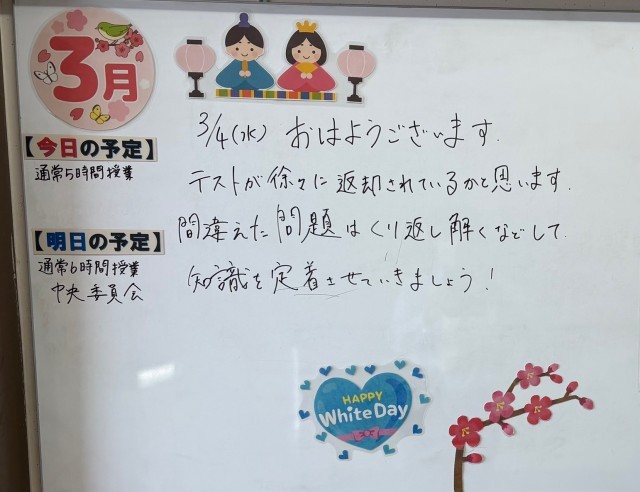 3月
3/4(水) おはようございます.
【今日の予定】
通常5時間授業
テストが徐々に返却されているかと思います.
【明日の予定】
通常6時間授業
中央委員会
間違えた問題はくり返し解くなどして.
知識を定着させていきましょう!
HAPPY
White Day